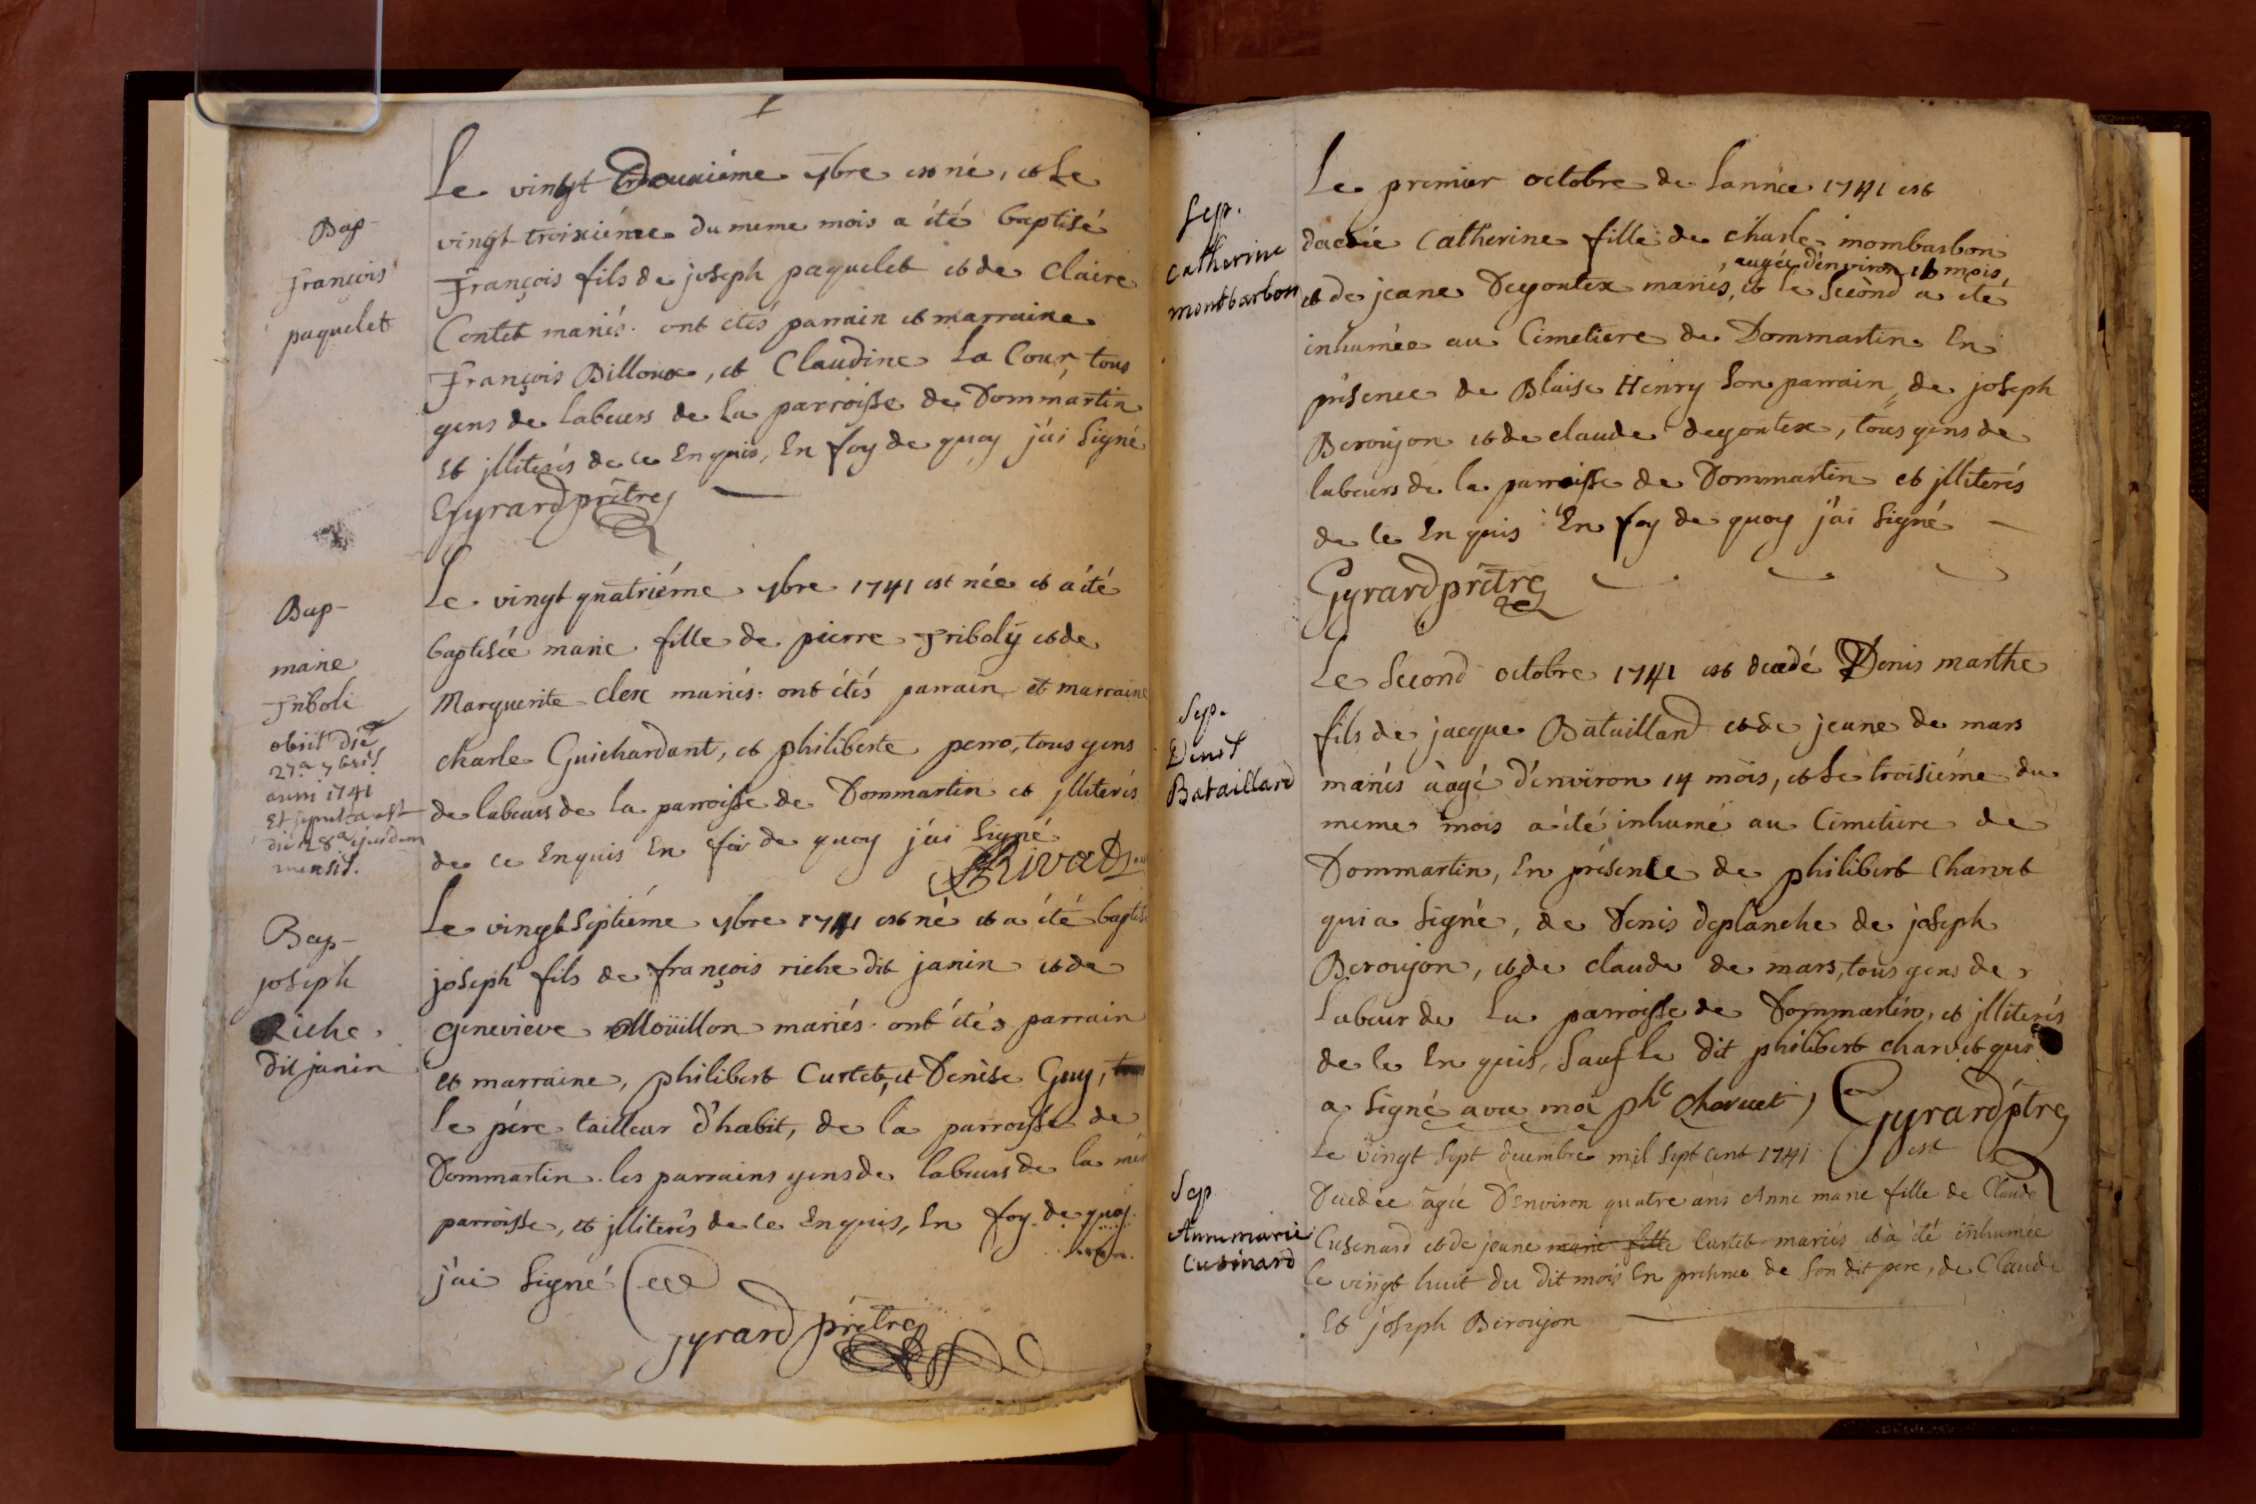 Bap-
François
paquelet
Le vingt Deuxiéme 7bre est né, et Le
vingt troixiéme du meme mois a été baptisé
François fils de joseph paquelet et de Claire
Contet mariés. ont etés parrain et marraine
François Billoux, et Claudine La Cour, tous
gens de labeurs de la parroisse de Dommartin
Et jlliterés de ce Enquis, En foy de quoy j'ai Signé
Gyrard prêtre
Bap-
marie
Triboli
obiit die
27a 7bris
anni 1741
Et sepulta est
die 28a ejusdem
mensis.
Le vingt quatriéme 7bre 1741 est née et a été
baptisée marie fille de pierre Triboly et de
Marguerite clex mariés. ont étés parrain et marraine
charle Guichardant, et philiberte perro, tous gens
de labeurs de la parroisse de Dommartin et jlliterés
de ce Enquis En foi de quoy j'ai Signé
Bap-
joseph
Riche
dit janin
Le vingt Septiéme 7bre 1741 est né et a été baptisé
joseph fils de françois riche dit janin et de
Genevieve Moüillon mariés. ont étés parrain
et marraine, philibert Curtet, et Denise Guy,
Le pére tailleur d'habit, de la parroisse de
Dommartin. les parrains gens de labeurs de la
parroisse, et jlliterés de ce Enquis, En foy de quoy
j'ai Signé
Gyrard prêtre
Sep.
catherine
montbarbon
Le premier octobre de Lannée 1741 est
dacdée Catherine fille de charle mombarbon
, augée d'environ 18 mois,
et de jeane Degoutex mariés, et le Second a été
inhumée au Cimetiere de Dommartin En
présence de Blaise Henry Son parrain, de joseph
Beroujon et de claude degoutex, tous gens de
labeurs de la parroisse de Dommartin et jlliterés
de ce Enquis En foy de quoy j'ai Signé
Gyrard prêtre
Sep.
Denis
Bataillard
Le Second octobre 1741 est decedé Denis marthe
fils de jacque Bataillard et de jeane de mars
mariés àagé d'environ 14 mois, et Le troisiéme du
meme mois a été inhumé au Cimetiere de
Dommartin, En présence de philibert Charvet
qui a Signé, de Denis deplanche de joseph
Beroujon, et de claude de mars, tous gens de
Labeur de La parroisse de Dommartin, et jlliterés
de ce Enquis, Sauf le dit philibert charvet qui
a Signé avec moi pht Charvet, Gyrard ptre
Sep
Annemarie
Cusenard
Le vingt Sept decembre mil Sept cent 1741 est
Decedée agée D'environ quatre ans Anne marie fille de Claude
Cusenard et de jeane marie fille Curtet mariés et à été inhumée
le vingt huit du dit mois En présence de Son dit pere, de Claude
Et joseph Beroujon